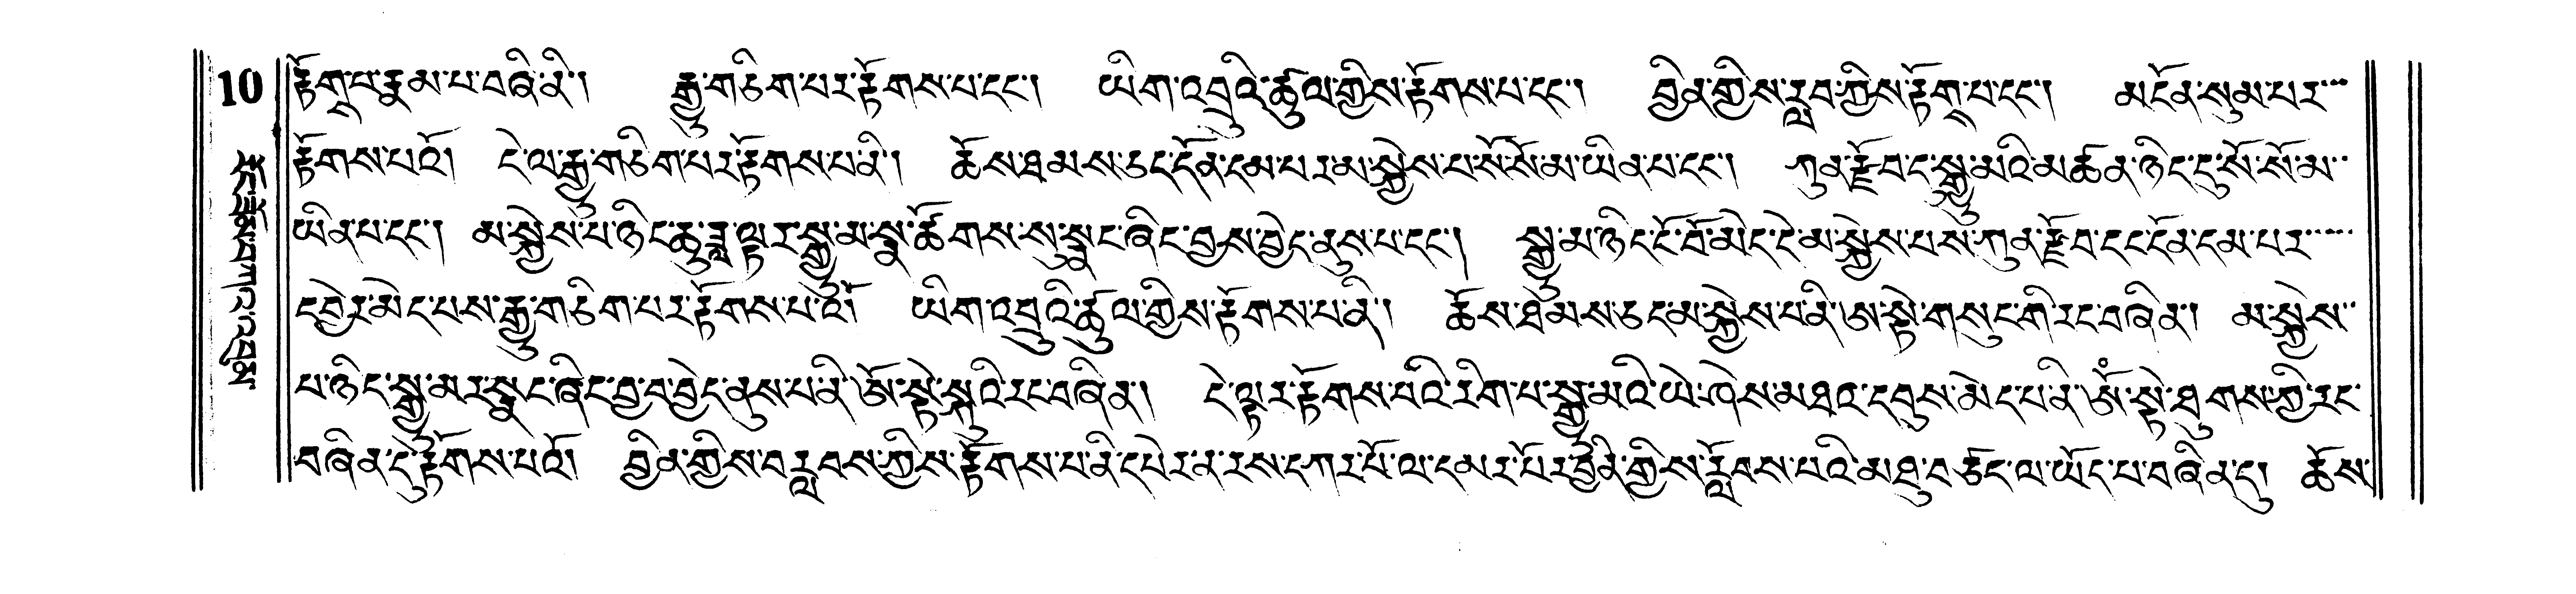 10 རྟོགཔ་རྣམ་པ་བཞི་ནི། རྒྱུ་གཅིག་པར་རྟོགས་པ་དང་། ཡིག་འབྲུའི་ཚུལ་གྱིས་རྟོགས་པ་དང་། བྱིན་གྱིས་རླབ་ཀྱིས་རྟོགཔ་དང་། མངོན་སུམ་པར
རྟོགས་པའོ། དེ་ལ་རྒྱུ་གཅིག་པར་རྟོགས་པ་ནི། ཆོས་ཐམས་ཅད་དོན་དམ་པར་མ་སྐྱེས་པ་སོ་སོ་མ་ཡིན་པ་དང་། ཀུན་རྫོབ་ད་སྒྱུ་མའི་མཚན་ཉིད་དུ་སོ་སོ་མ
ཡིན་པ་དང་། མ་སྐྱེས་པ་ཉིད་ཆུ་ཟླ་ལྟར་སྒྱུ་མ་སྣ་ཚོགས་སུ་སྣང་ཞིང་བྱས་བྱེད་ནུས་པ་དང་། སྒྱུ་མ་ཉིད་ངོ་བོ་མེད་དེ་མ་སྐྱེས་པས་ཀུན་རྫོབ་དང་དོན་དམ་པར
དབྱེར་མེད་པས་རྒྱུ་གཅིག་པར་རྟོགས་པའོ། ཡིག་འབྲུའི་ཚུལ་གྱིས་རྟོགས་པ་ནི། ཆོས་ཐམས་ཅད་མ་སྐྱེས་པ་ནི་ཨ་སྟེ་གསུང་གི་རང་བཞིན། མ་སྐྱེས
པ་ཉིད་སྒྱུ་མར་སྣང་ཞིང་བྱ་བ་བྱེད་ནུས་པ་ནི་ཨོ་སྟེ་སྐུའི་རང་བཞིན། དེ་ལྟར་རྟོགས་པའི་རིག་པ་སྒྱུ་མའི་ཡེ་ཤེས་མཐའ་དབུས་མེད་པ་ནི་ཨོཾ་སྟེ་ཐུགས་ཀྱི་རང་
བཞིན་དུ་རྟོགས་པའོ། བྱིན་གྱིས་བརླབས་ཀྱིས་རྟོགས་པ་ནི་དཔེར་ན་རས་དཀར་པོ་ལ་དམར་པོར་བྱིན་གྱིས་རློབས་པའི་མཐུ་བཙོད་ལ་ཡོད་པ་བཞིན་དུ། ཆོས་